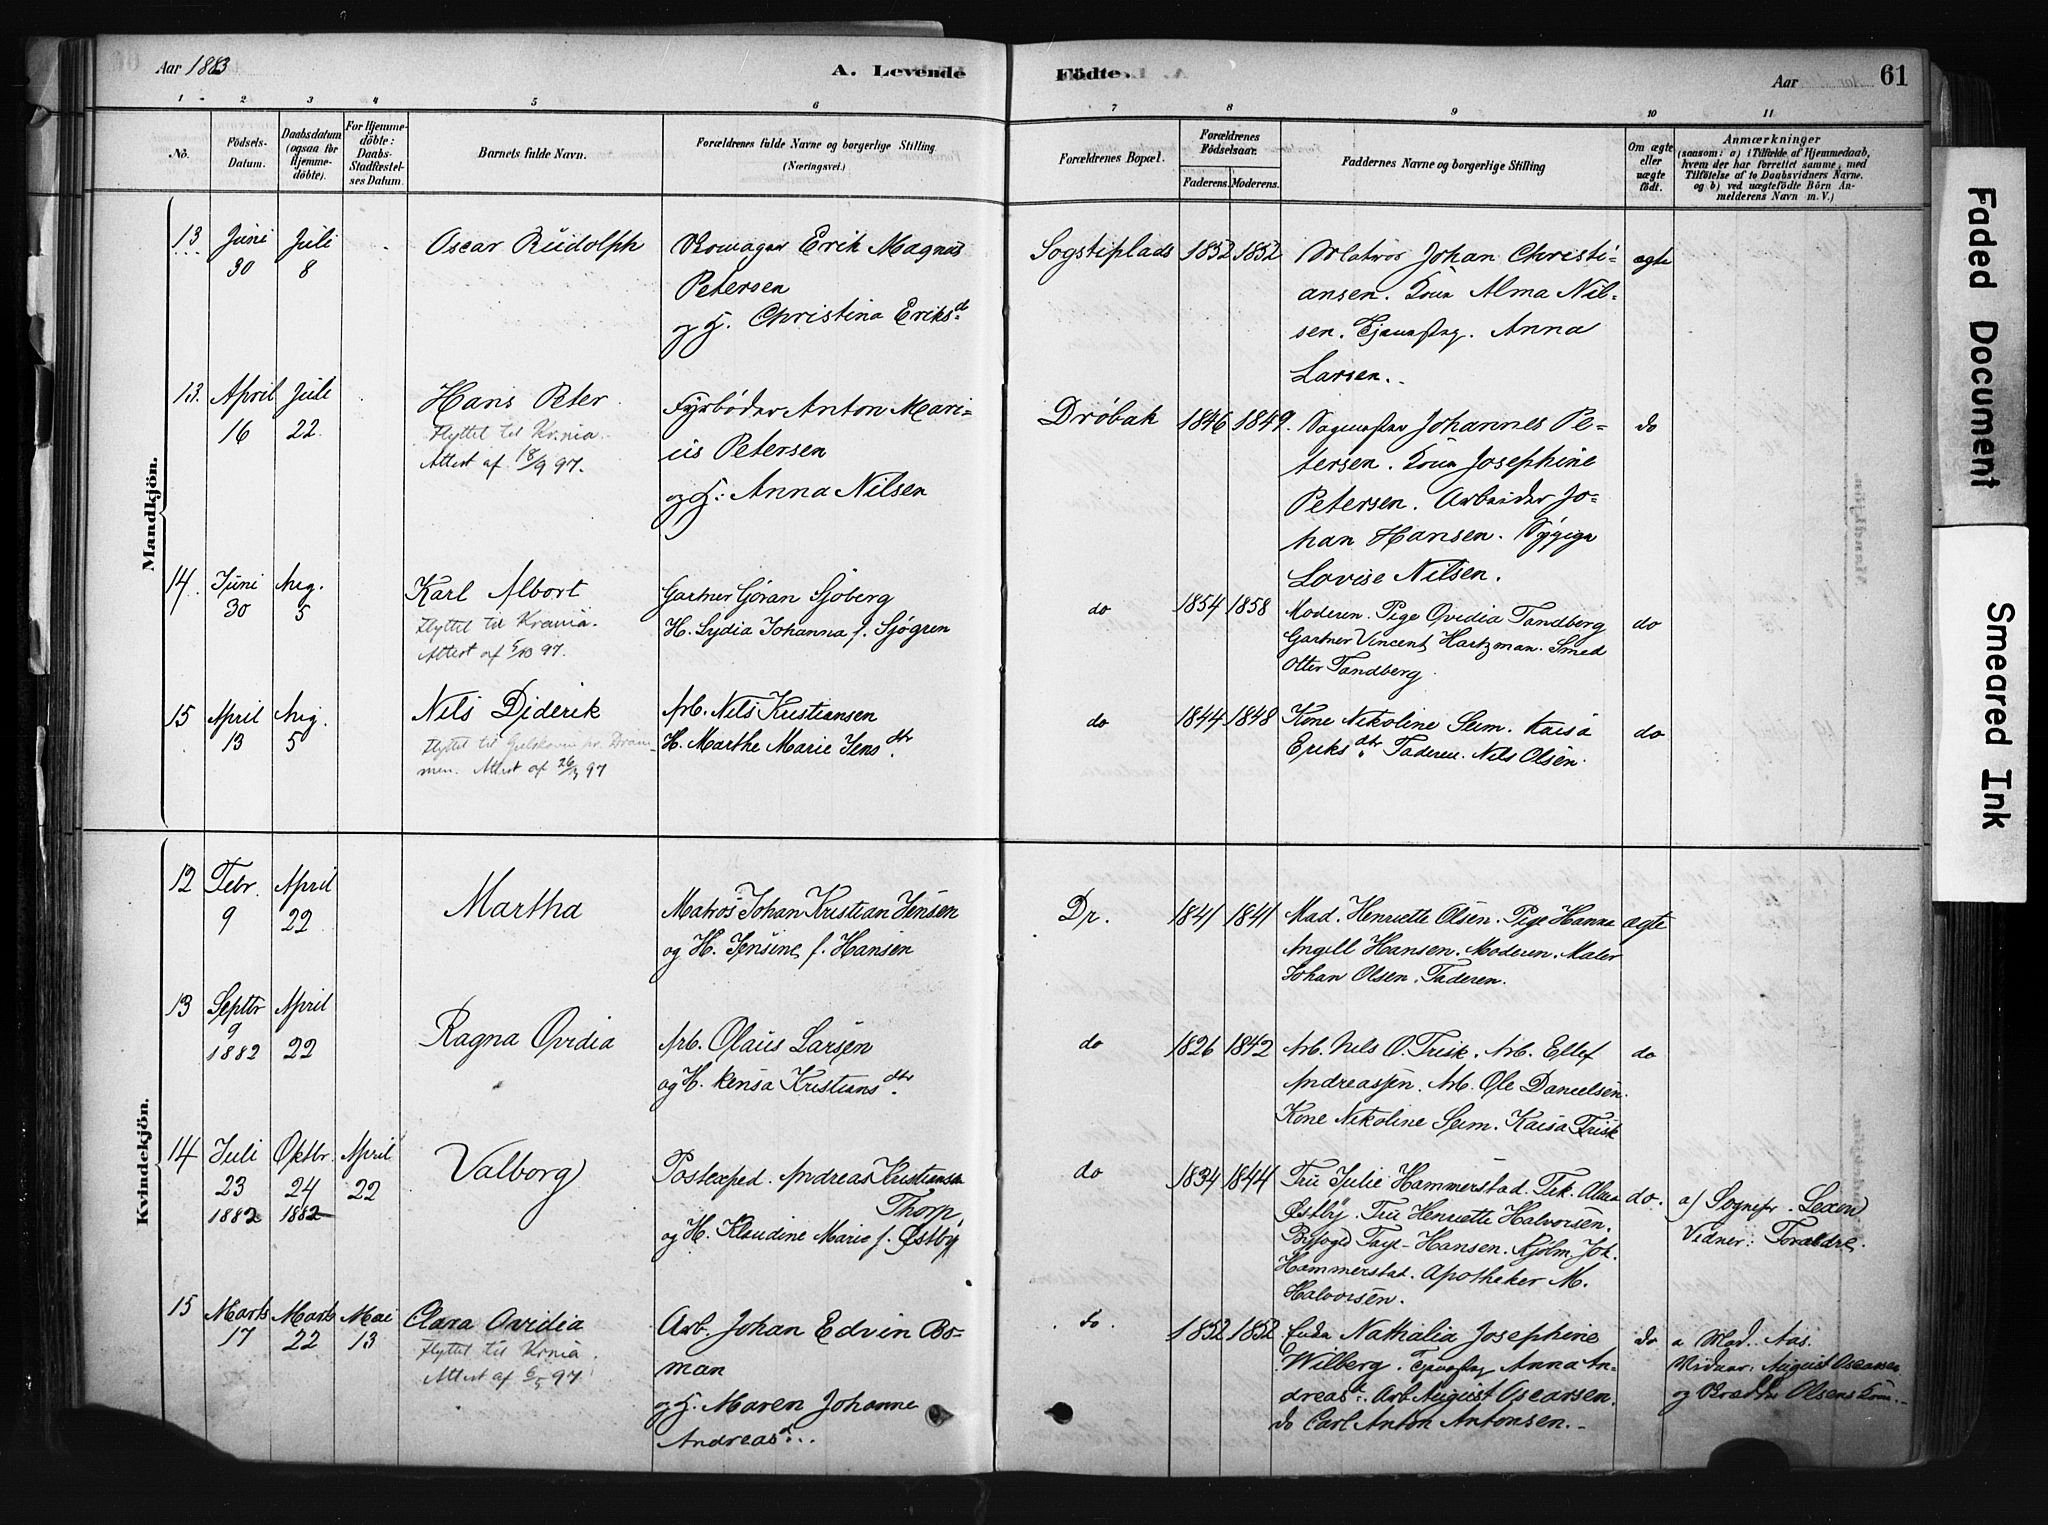 Aar 1883
A. Levende
Födte.
Aar
61
1
2
3
4
5
6
7
8
9
10
11
No.
Födsels-
Datum.
Daabsdatum
(ogsaa for
Hjemme-
döbte).
For Hjemme-
döbte:
Daabs-
Stadfæstel-
ses Datum.
Barnets fulde Navn.
Forældrenes fulde Navne og borgerlige Stilling
(Næringsvei.)
Forældrenes Bopæl.
Forældrenes
Födselsaar.
Faderens.
Moderens.
Faddernes Navne og borgerlige Stilling
Om ægte
eller
uægte
födt.
Anmærkninger
(saasom: a) i Tilfælde af Hjemmedaab,
hvem der har forrettet samme, med
Tilföielse af to Daabsvidners Navne.
og b) ved uægtefödte Börn An-
melderens Navn m. V.)
Mandkjön.
13
Juni
30
Juli
8
Oscar Rudolph
Skomager Erik Magnus
Petersen
og H. Christina Eriksd.
Sogstiplads
1852
1852
Matros Johan Christi-
ansen. Kone Alma Nil-
sen. Tjenestepg. Anna
Larsen.
ægte
13.
April
16
Juli
22.
Hans Peter
Flyttet til Krnia.
Attest af 18/9 97.
Fyrbøder Anton Mari-
us Petersen
og H: Anna Nilsen
Drøbak
1846
1849.
Johannes Pe-
tersen. Kone Josephine
Petersen. Arbeider Jo-
han Hansen.
Lovise Nilsen.
do
14.
Juni
30
Aug.
5
Karl Albert
Flyttet til Krania.
Attest af 5/10 97.
Gartner Göran Sjöberg
H. Lydia Johanna f. Sjögren
do
1854
1858
Moderen. Pige Ovidia Tandberg
Gartner Vincent Hartzman. Smed
Otter Tandberg.
do
15
April
13
Aug.
5
Nils Diderik
Flyttet til Gulskoven pr. Dram-
men. Attest af 26/3 97
Arb. Nils Kristiansen
H. Marthe Marie Jensdtr.
do
1844
1848
Kone Nikoline Seim. Kaisa
Eriksdtr. Faderen. Nils Olsen.
do
Kvindekjön.
12
Febr.
9
April
22
Martha
Matros Johan Kristian Jensen
og H. Jensine f. Hansen
Dr.
1841
1841
Mad. Henriette Olsen. Pige Hanna
Angell Hansen. Moderen. Maler
Johan Olsen. Faderen.
ægte
13
Septbr
9
1882
April
22
Ragna Ovidia
Arb. Olaus Larsen
og H. Kensa Kristiansdtr.
do
1826
1842
Arb. Nils O. Frisk. Arb. Ellef
Andreassen. Arb. Ole Danielsen.
Kone Nikoline Seim. Kaisa Frisk
do
14
Juli
23
1882
Oktbr.
24
1882
April
22
Valborg
Postexped. Andreas Kristiansen
Thorp
og H. Klaudine Marie f. Østby
do
1834
1844
Fru Julie Hammerstad. Frk. Alma
Østby. Fru Henriette Halvorsen.
Byfoged Faye-Hansen. Kjøbm Joh.
Hammerstad. Apotheker M.
Halvorsen.
do.
a/ Sognepr. Lexow
Vidner: Forældre.
15
Marts
17
Marts
22
Mai
13
Clara Ovidia
Flyttet til Krnia.
Attest af 6/5 97
Arb. Johan Edvin Bo-
man
og H. Maren Johanne
Andreasd.
do.
1852
1852
Enke Nathalia Josephine
Wilberg. Tjenestepg Anna An-
dreasd. Arb August Oscarsen.
do Carl Anton Antonsen.
do
a Mad. Aas.
Vidner: August Oscarsen
og Olsens Kone.
Faded Document
Smeared Ink